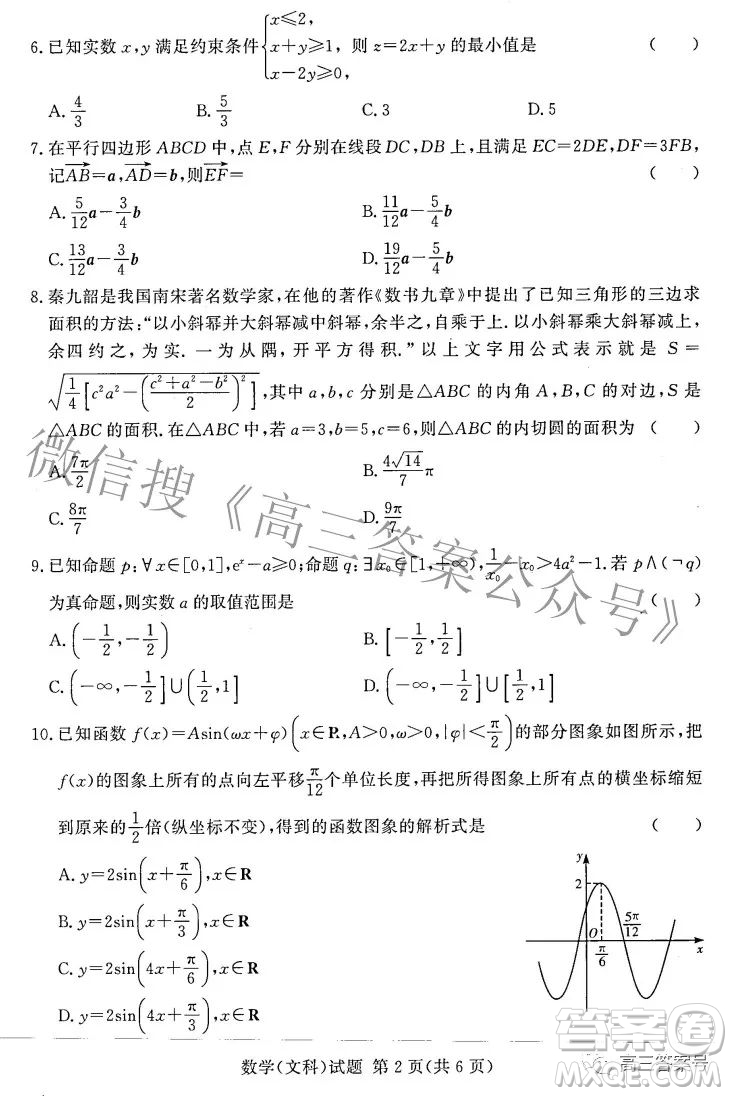 6.已知实数 x,y 满足约束条件{x≤2, x+y≥1, x-2y≥0, 则 z=2x+y 的最小值是 (  )
A.4/3 B.5/3 C.3 D.5
7.在平行四边形 ABCD 中,点 E,F 分别在线段 DC,DB 上,且满足 EC=2DE,DF=3FB,
记\overrightarrow{AB}=a,\overrightarrow{AD}=b,则\overrightarrow{EF}= (  )
A.5/12 a-3/4 b B.11/12 a-5/4 b
C.13/12 a-3/4 b D.19/12 a-5/4 b
8.秦九韶是我国南宋著名数学家,在他的著作《数书九章》中提出了已知三角形的三边求
面积的方法:“以小斜幂并大斜幂减中斜幂,余半之,自乘于上.以小斜幂乘大斜幂减上,
余四约之,为实.一为从隅,开平方得积.”以上文字用公式表示就是 S=
√(1/4[c²a²-((c²+a²-b²)/2)²]),其中 a,b,c 分别是△ABC 的内角 A,B,C 的对边,S 是
△ABC 的面积.在△ABC 中,若 a=3,b=5,c=6,则△ABC 的内切圆的面积为 (  )
A.7π/2 B.4√14/7 π
C.8π/7 D.9π/7
9.已知命题 p:∀x∈[0,1],eˣ-a≥0;命题 q:∃x₀∈[1,+∞),1/x₀-x₀>4a²-1.若 p∧(¬q)
为真命题,则实数 a 的取值范围是 (  )
A.(-1/2,-1/2) B.[-1/2,1/2]
C.(-∞,-1/2]∪(1/2,1] D.(-∞,-1/2]∪[1/2,1]
10.已知函数 f(x)=Asin(ωx+φ)(x∈R,A>0,ω>0,|φ|<π/2)的部分图象如图所示,把
f(x)的图象上所有的点向左平移π/12个单位长度,再把所得图象上所有点的横坐标缩短
到原来的1/2倍(纵坐标不变),得到的函数图象的解析式是 (  )
A.y=2sin(x+π/6),x∈R
B.y=2sin(x+π/3),x∈R
C.y=2sin(4x+π/6),x∈R
D.y=2sin(4x+π/3),x∈R
y
2
5π/12
O
π/6
x
数学(文科)试题 第 2 页(共 6 页)
微信搜《高三答案公众号》
答案圈
高三答案号